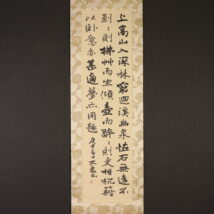 上高山入深林窮迴溪幽泉怪石無遠不
到到則披草而坐傾壺而醉醉則更相枕
以臥意亦甚適夢亦同趣